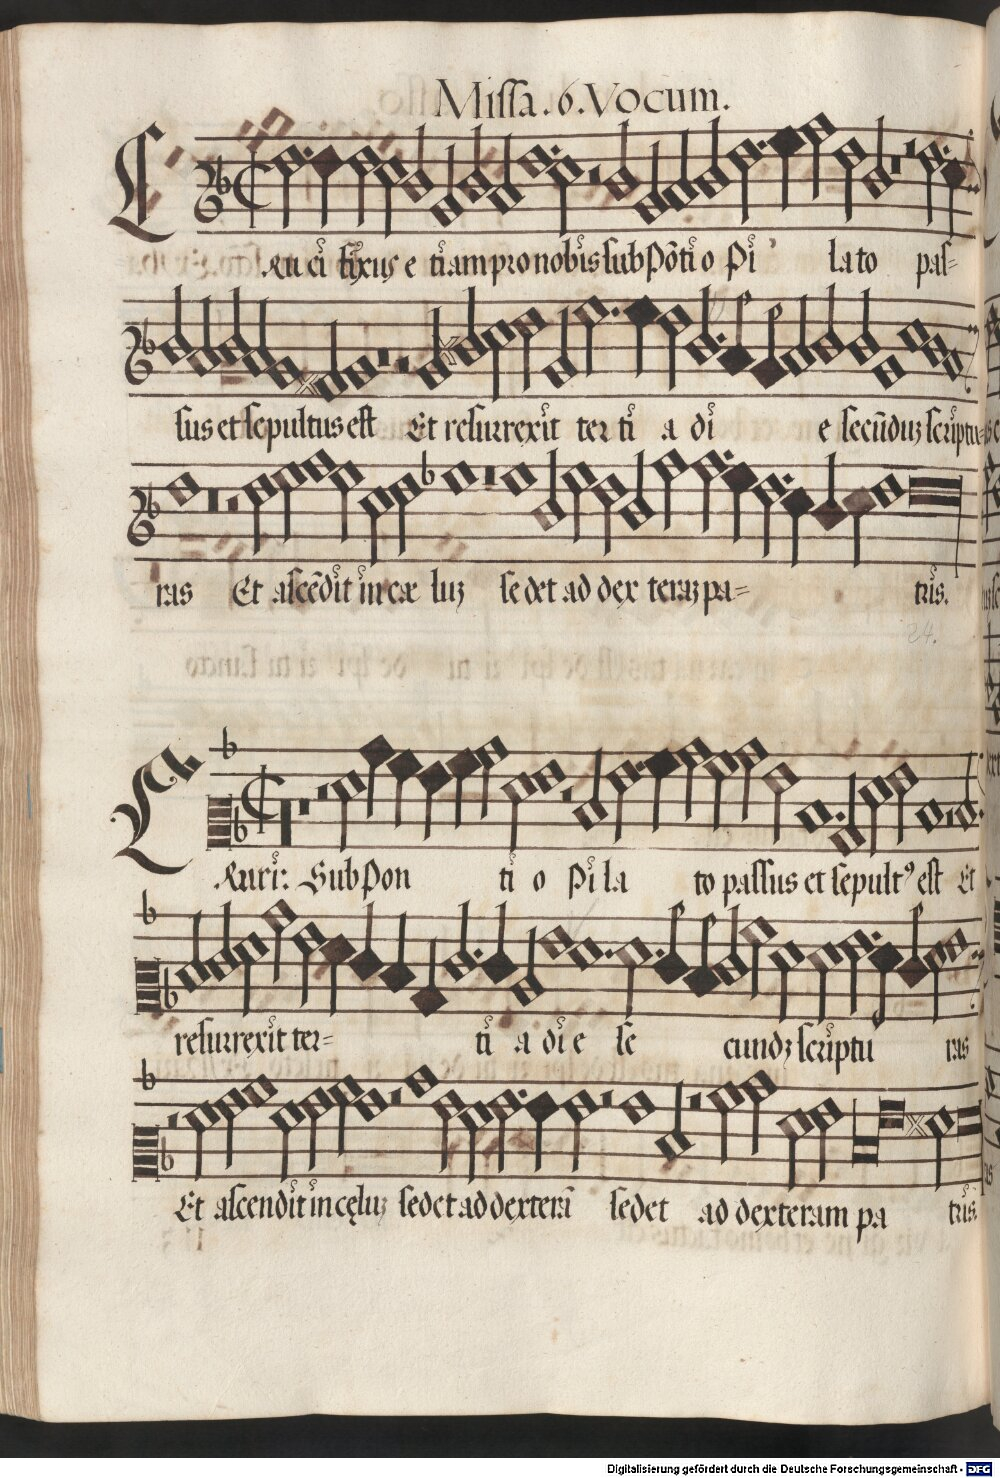 Missa .6. Vocum.
Crucifixus etiam pro nobis sub Põtio Pilato pas=
sus et sepultus est Et resurrexit tertia die secũduʒ scriptu=
ras Et ascẽdit in cæluʒ sedet ad dexteraʒ pa= tris.
24.
Cruci: Sub Pontio Pilato passus et sepultꝰ est Et
resurrexit ter= tia die secundʒ scripturas
Et ascendit in cęluʒ sedet ad dexterã sedet ad dexteram patris
Digitalisierung gefördert durch die Deutsche Forschungsgemeinschaft - DFG